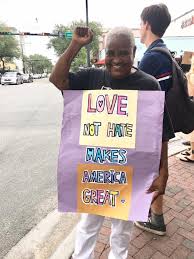 LOVE,
NOT HATE
MAKES
AMERICA
GREAT.